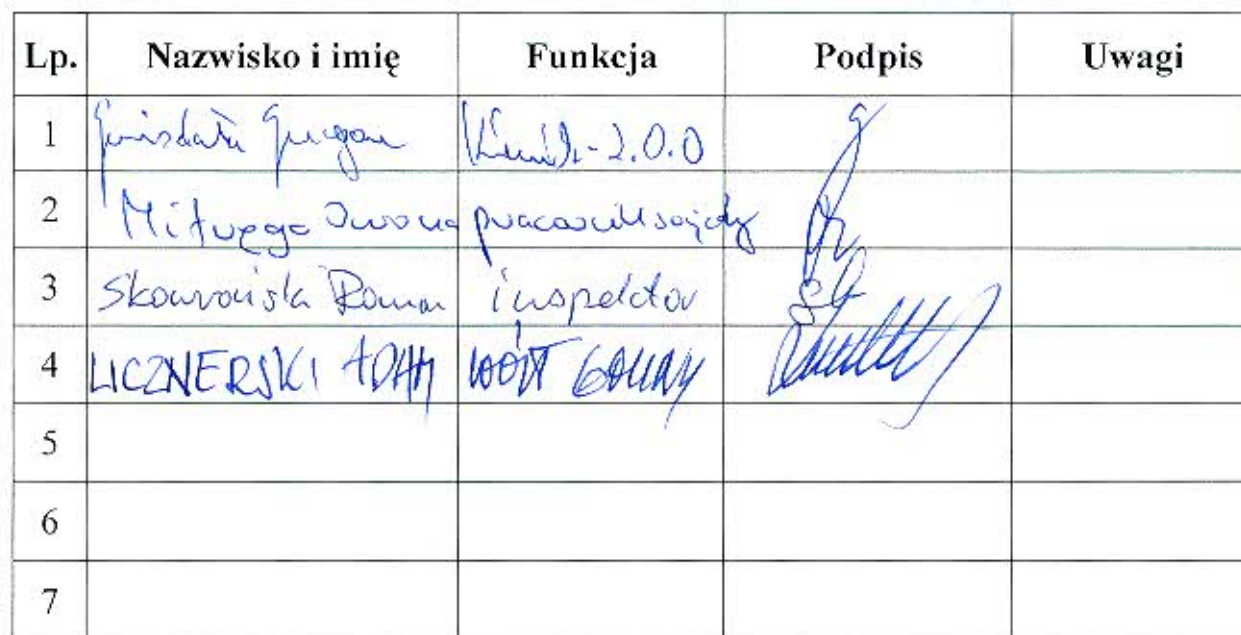 Lp. Nazwisko i imię Funkcja Podpis Uwagi
1
2 Mitręga Iwona pracownik socjalny
3 Skowrońska Roma inspektor
4 LICZNERSKI ADAM WÓJT GMINY
5
6
7